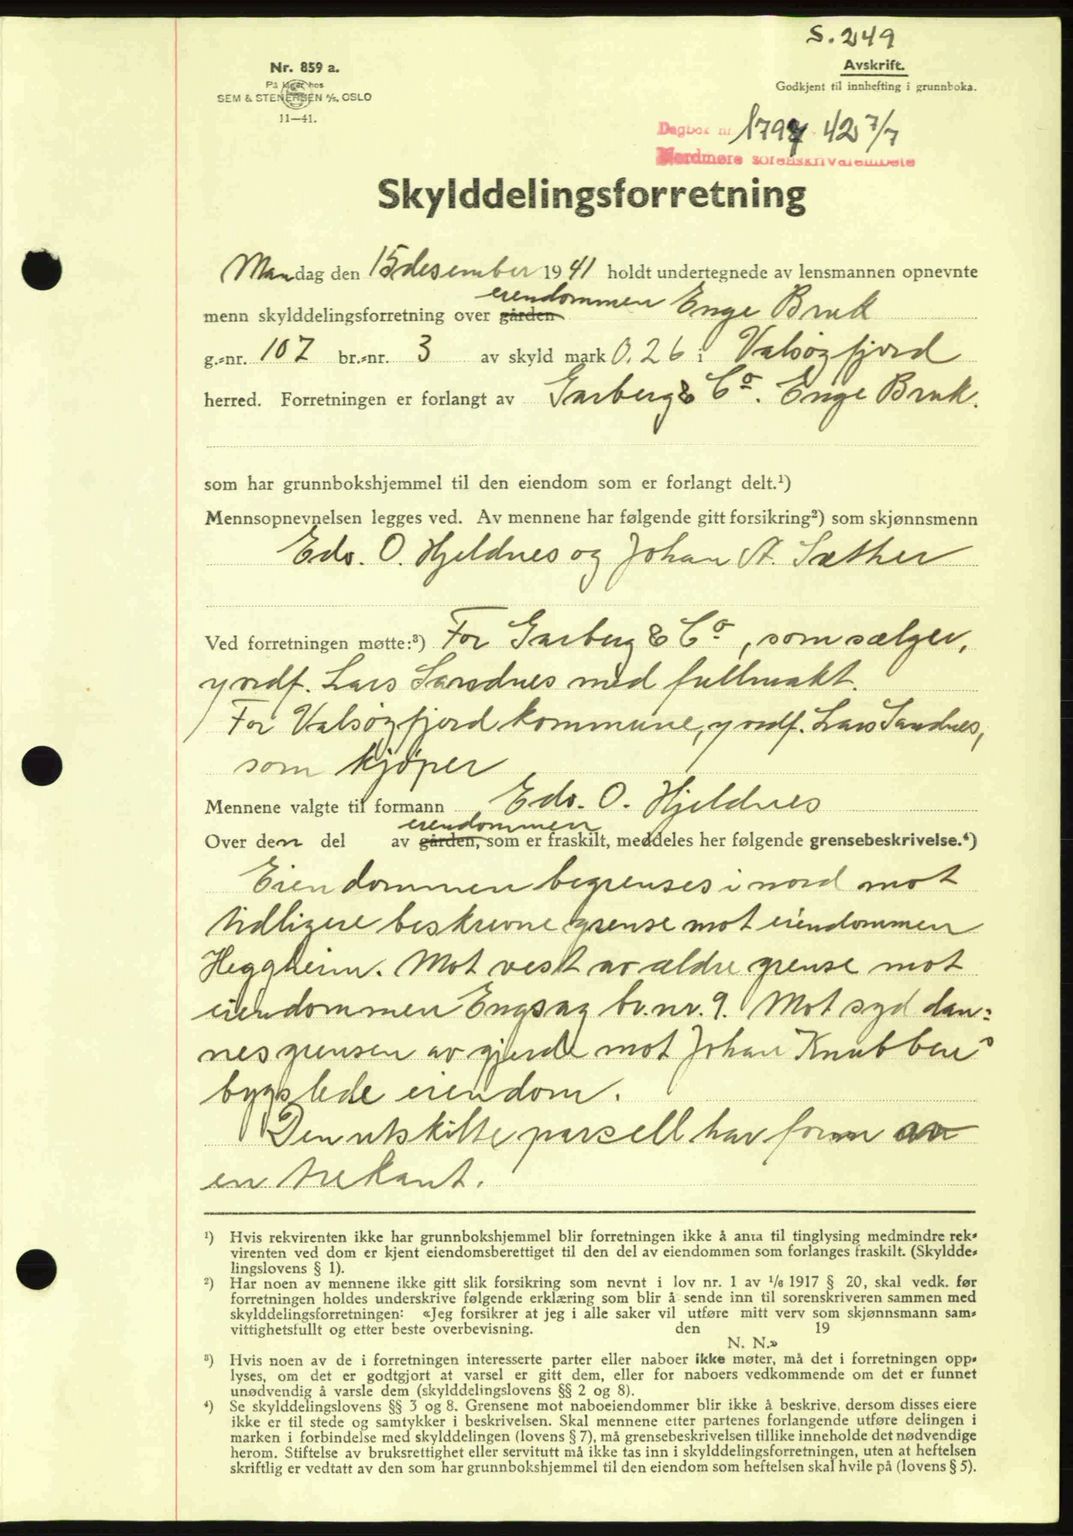 S. 249
Nr. 859 a.
På lager hos
SEM & STENERSEN A/S, OSLO
11—41.
Avskrift.
Godkjent til innhefting i grunnboka.
Dagbok nr 1797 42 7/7
Nordmøre sorenskriverembete
Skylddelingsforretning
Mandag den 15 desember 1941 holdt undertegnede av lensmannen opnevnte
eiendommen
menn skylddelingsforretning over gården Enge Bruk
g.-nr. 107 br.-nr. 3 av skyld mark 0.26 i Valsøyfjord
herred. Forretningen er forlangt av Garberg & Co. Enge Bruk.
som har grunnbokshjemmel til den eiendom som er forlangt delt.¹)
Mennsopnevnelsen legges ved. Av mennene har følgende gitt forsikring²) som skjønnsmenn
Edv. O. Hjeldnes og Johan A. Sæther
Ved forretningen møtte:³) For Garberg & Co, som sælger,
v ordf. Lars Sandnes med fullmakt.
For Valsøyfjord kommune, v ordf. Lars Sandnes,
som kjøper
Mennene valgte til formann Edv. O. Hjeldnes
eiendommen
Over den del av gården, som er fraskilt, meddeles her følgende grensebeskrivelse.⁴)
Eiendommen begrenses i nord mot
tidligere beskrevne grense mot eiendommen
Heggheim. Mot vest av ældre grense mot
eiendommen Engsag br.nr. 9. Mot syd dan=
nes grensen av gjerde mot Johan Knubben's
bygslede eiendom.
Den utskilte parsell har form av
en trekant.
¹) Hvis rekvirenten ikke har grunnbokshjemmel blir forretningen ikke å anta til tinglysing medmindre rek-
virenten ved dom er kjent eiendomsberettiget til den del av eiendommen som forlanges fraskilt. (Skyldde-
lingslovens § 1).
²) Har noen av mennene ikke gitt slik forsikring som nevnt i lov nr. 1 av 1/6 1917 § 20, skal vedk. før
forretningen holdes underskrive følgende erklæring som blir å sende inn til sorenskriveren sammen med
skylddelingsforretningen: «Jeg forsikrer at jeg i alle saker vil utføre mitt verv som skjønnsmann sam-
vittighetsfullt og etter beste overbevisning. den 19
N. N.»
³) Hvis noen av de i forretningen interesserte parter eller naboer ikke møter, må det i forretningen opp-
lyses, om det er godtgjort at varsel er gitt dem, eller for naboers vedkommende om det er funnet
unødvendig å varsle dem (skylddelingslovens §§ 2 og 8).
⁴) Se skylddelingslovens §§ 3 og 8. Grensene mot naboeiendommer blir ikke å beskrive, dersom disses eiere
ikke er til stede og samtykker i beskrivelsen. Skal mennene etter partenes forlangende utføre delingen i
marken i forbindelse med skylddelingen (lovens § 7), må grensebeskrivelsen tillike inneholde det nødvendige
herom. Stiftelse av bruksrettighet eller servitutt må ikke tas inn i skylddelingsforretningen, uten at heftelsen
skriftlig er vedtatt av den som har grunnbokshjemmel til den eiendom som heftelsen skal hvile på (lovens § 5).